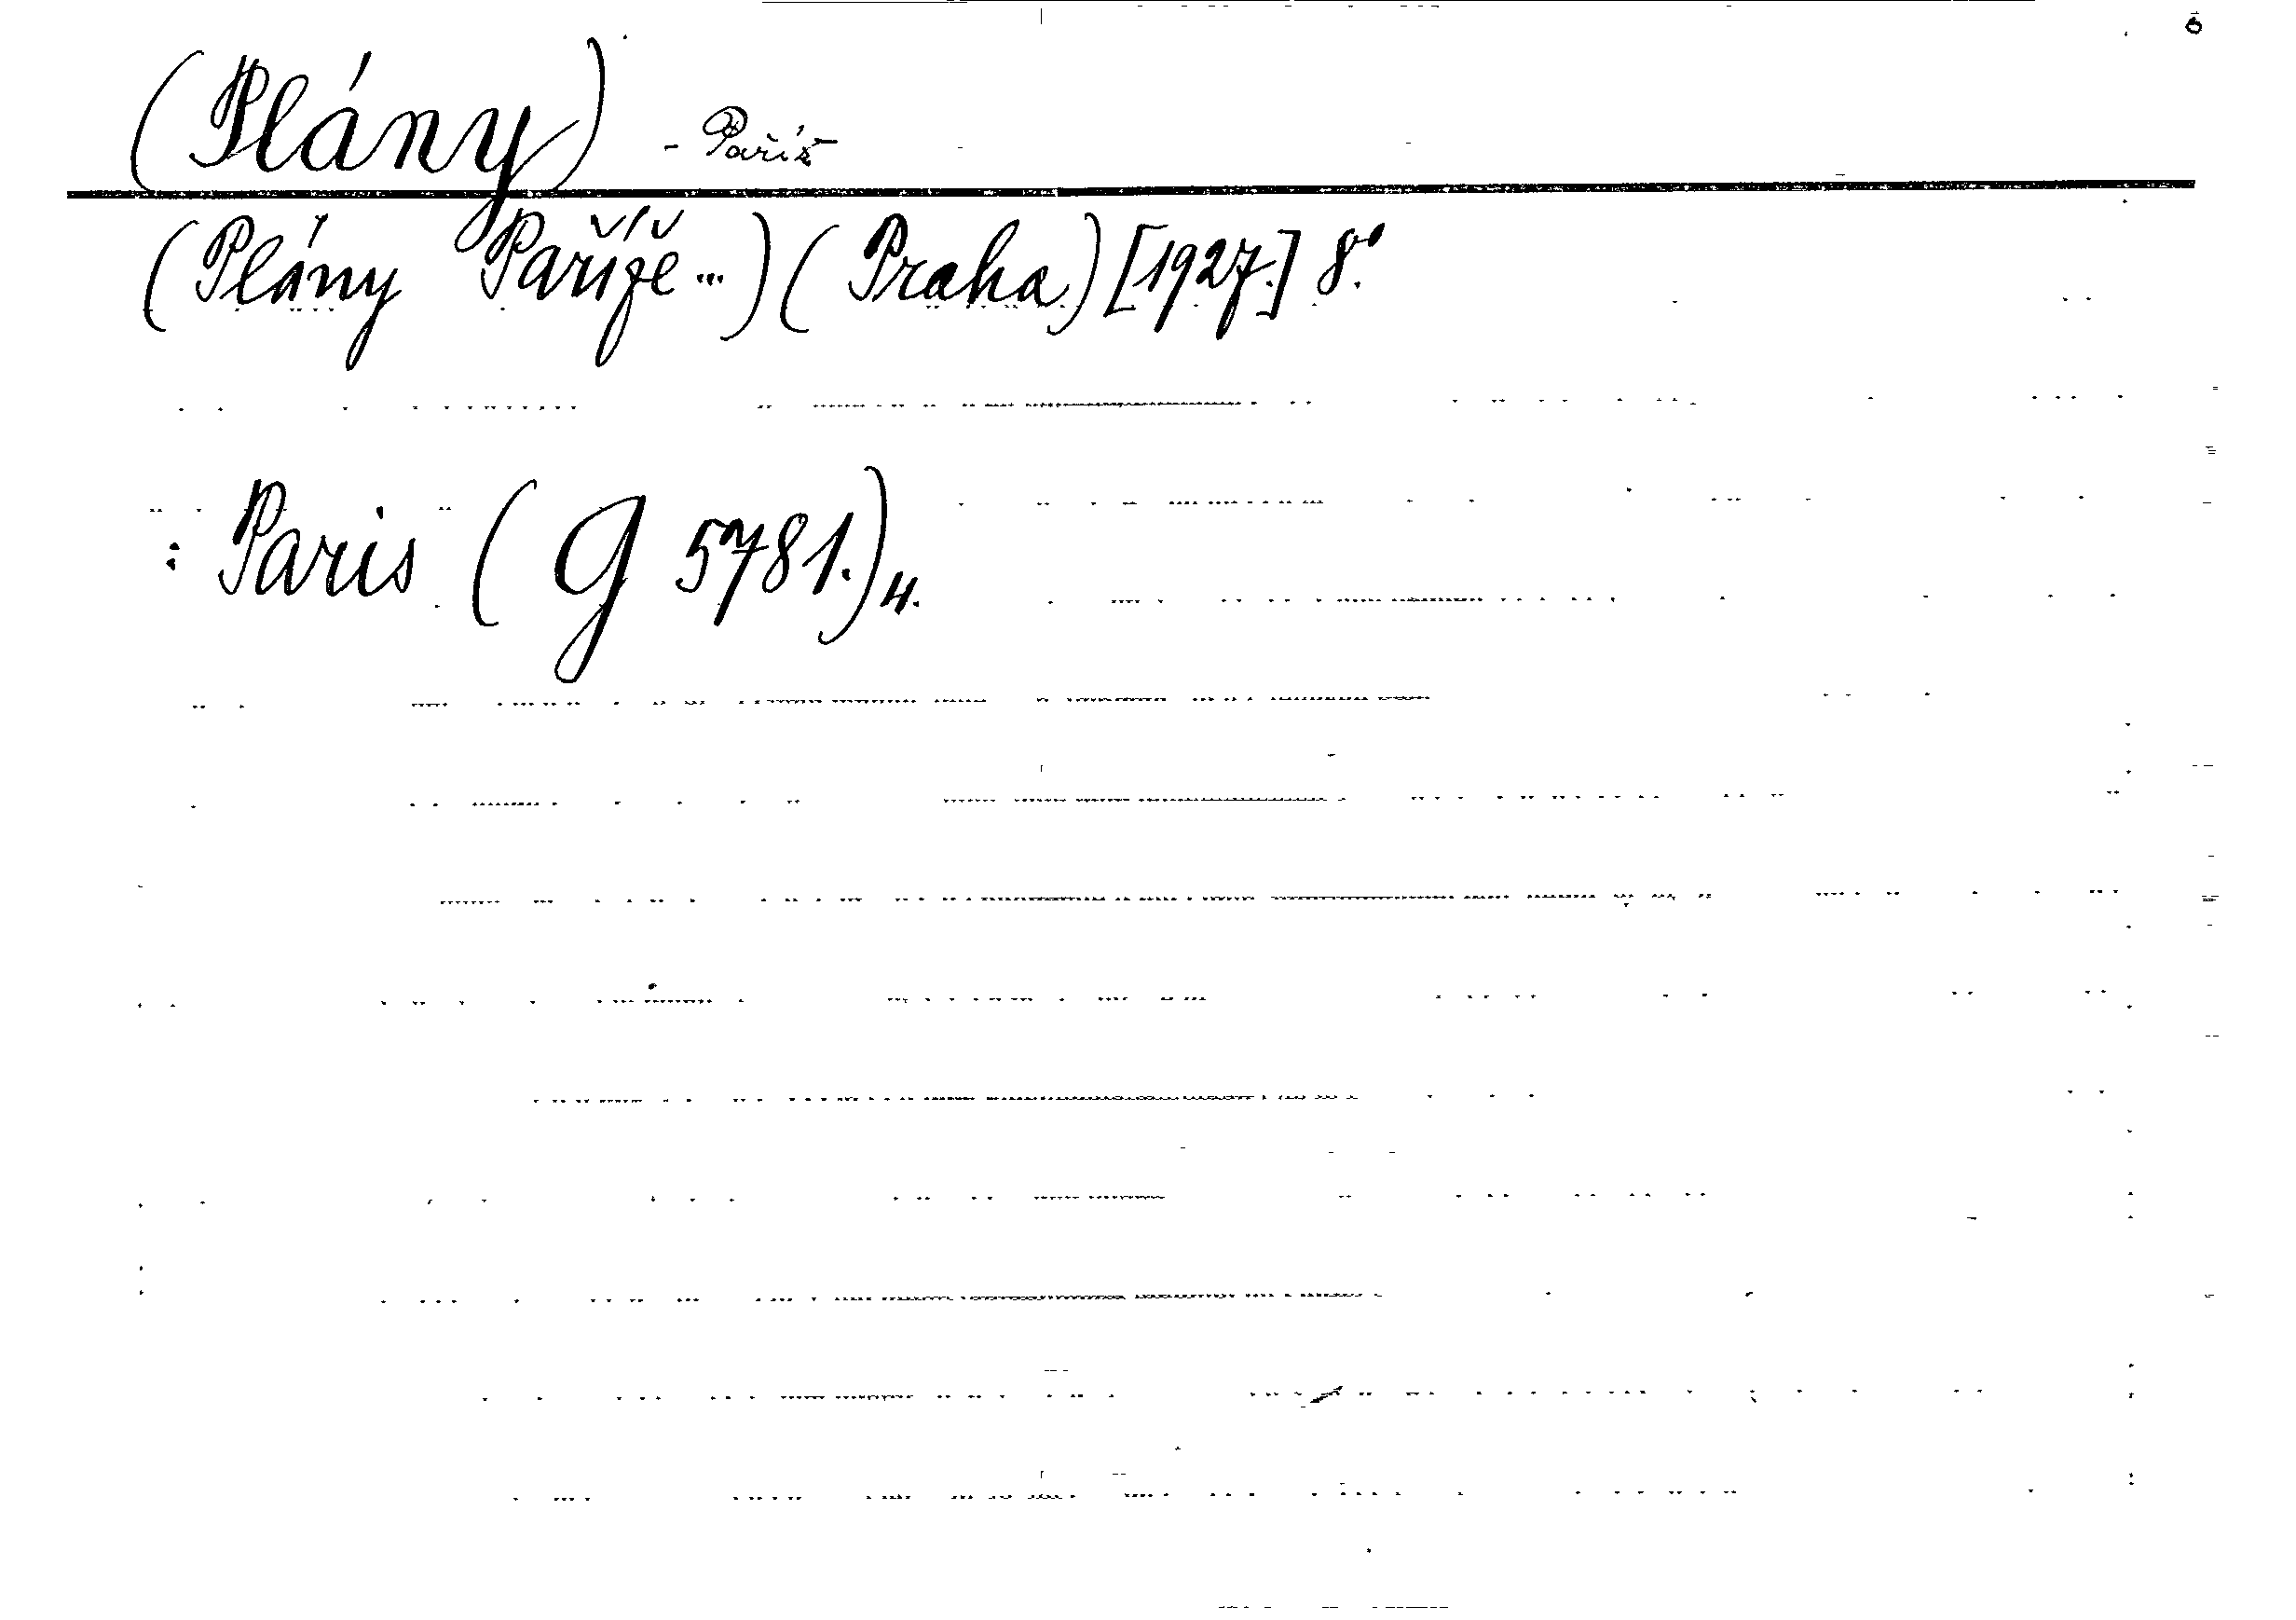 (Plány) - Paříž
(Plány Paříže ...) (Praha) [1927.] 8°.
: Paris (G 5781.)4.